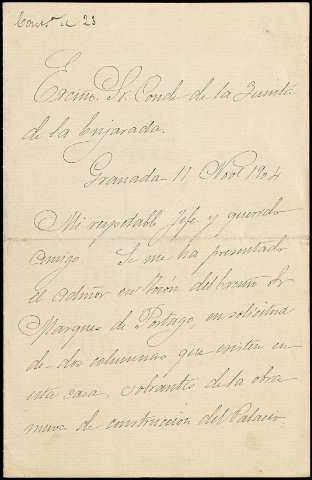 Contdo el 23
Excmo. Sr. Conde de la Quinta
de la Enjarada.
Granada 11 Nove 1904
Mi respetable Jefe y querido
amigo. Se me ha presentado
el admor en del Excmo Sr
Marques de Portago, en solicitud
de dos columnas que existen en
esta casa, sobrantes de la obra
nueva de construccion del Palacio